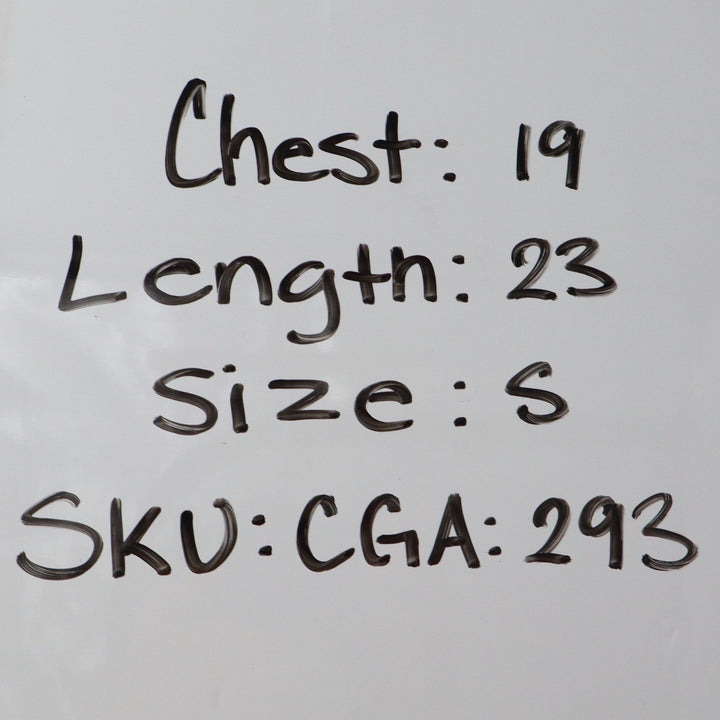 Chest: 19
Length: 23
Size: S
SKU: CGA: 293